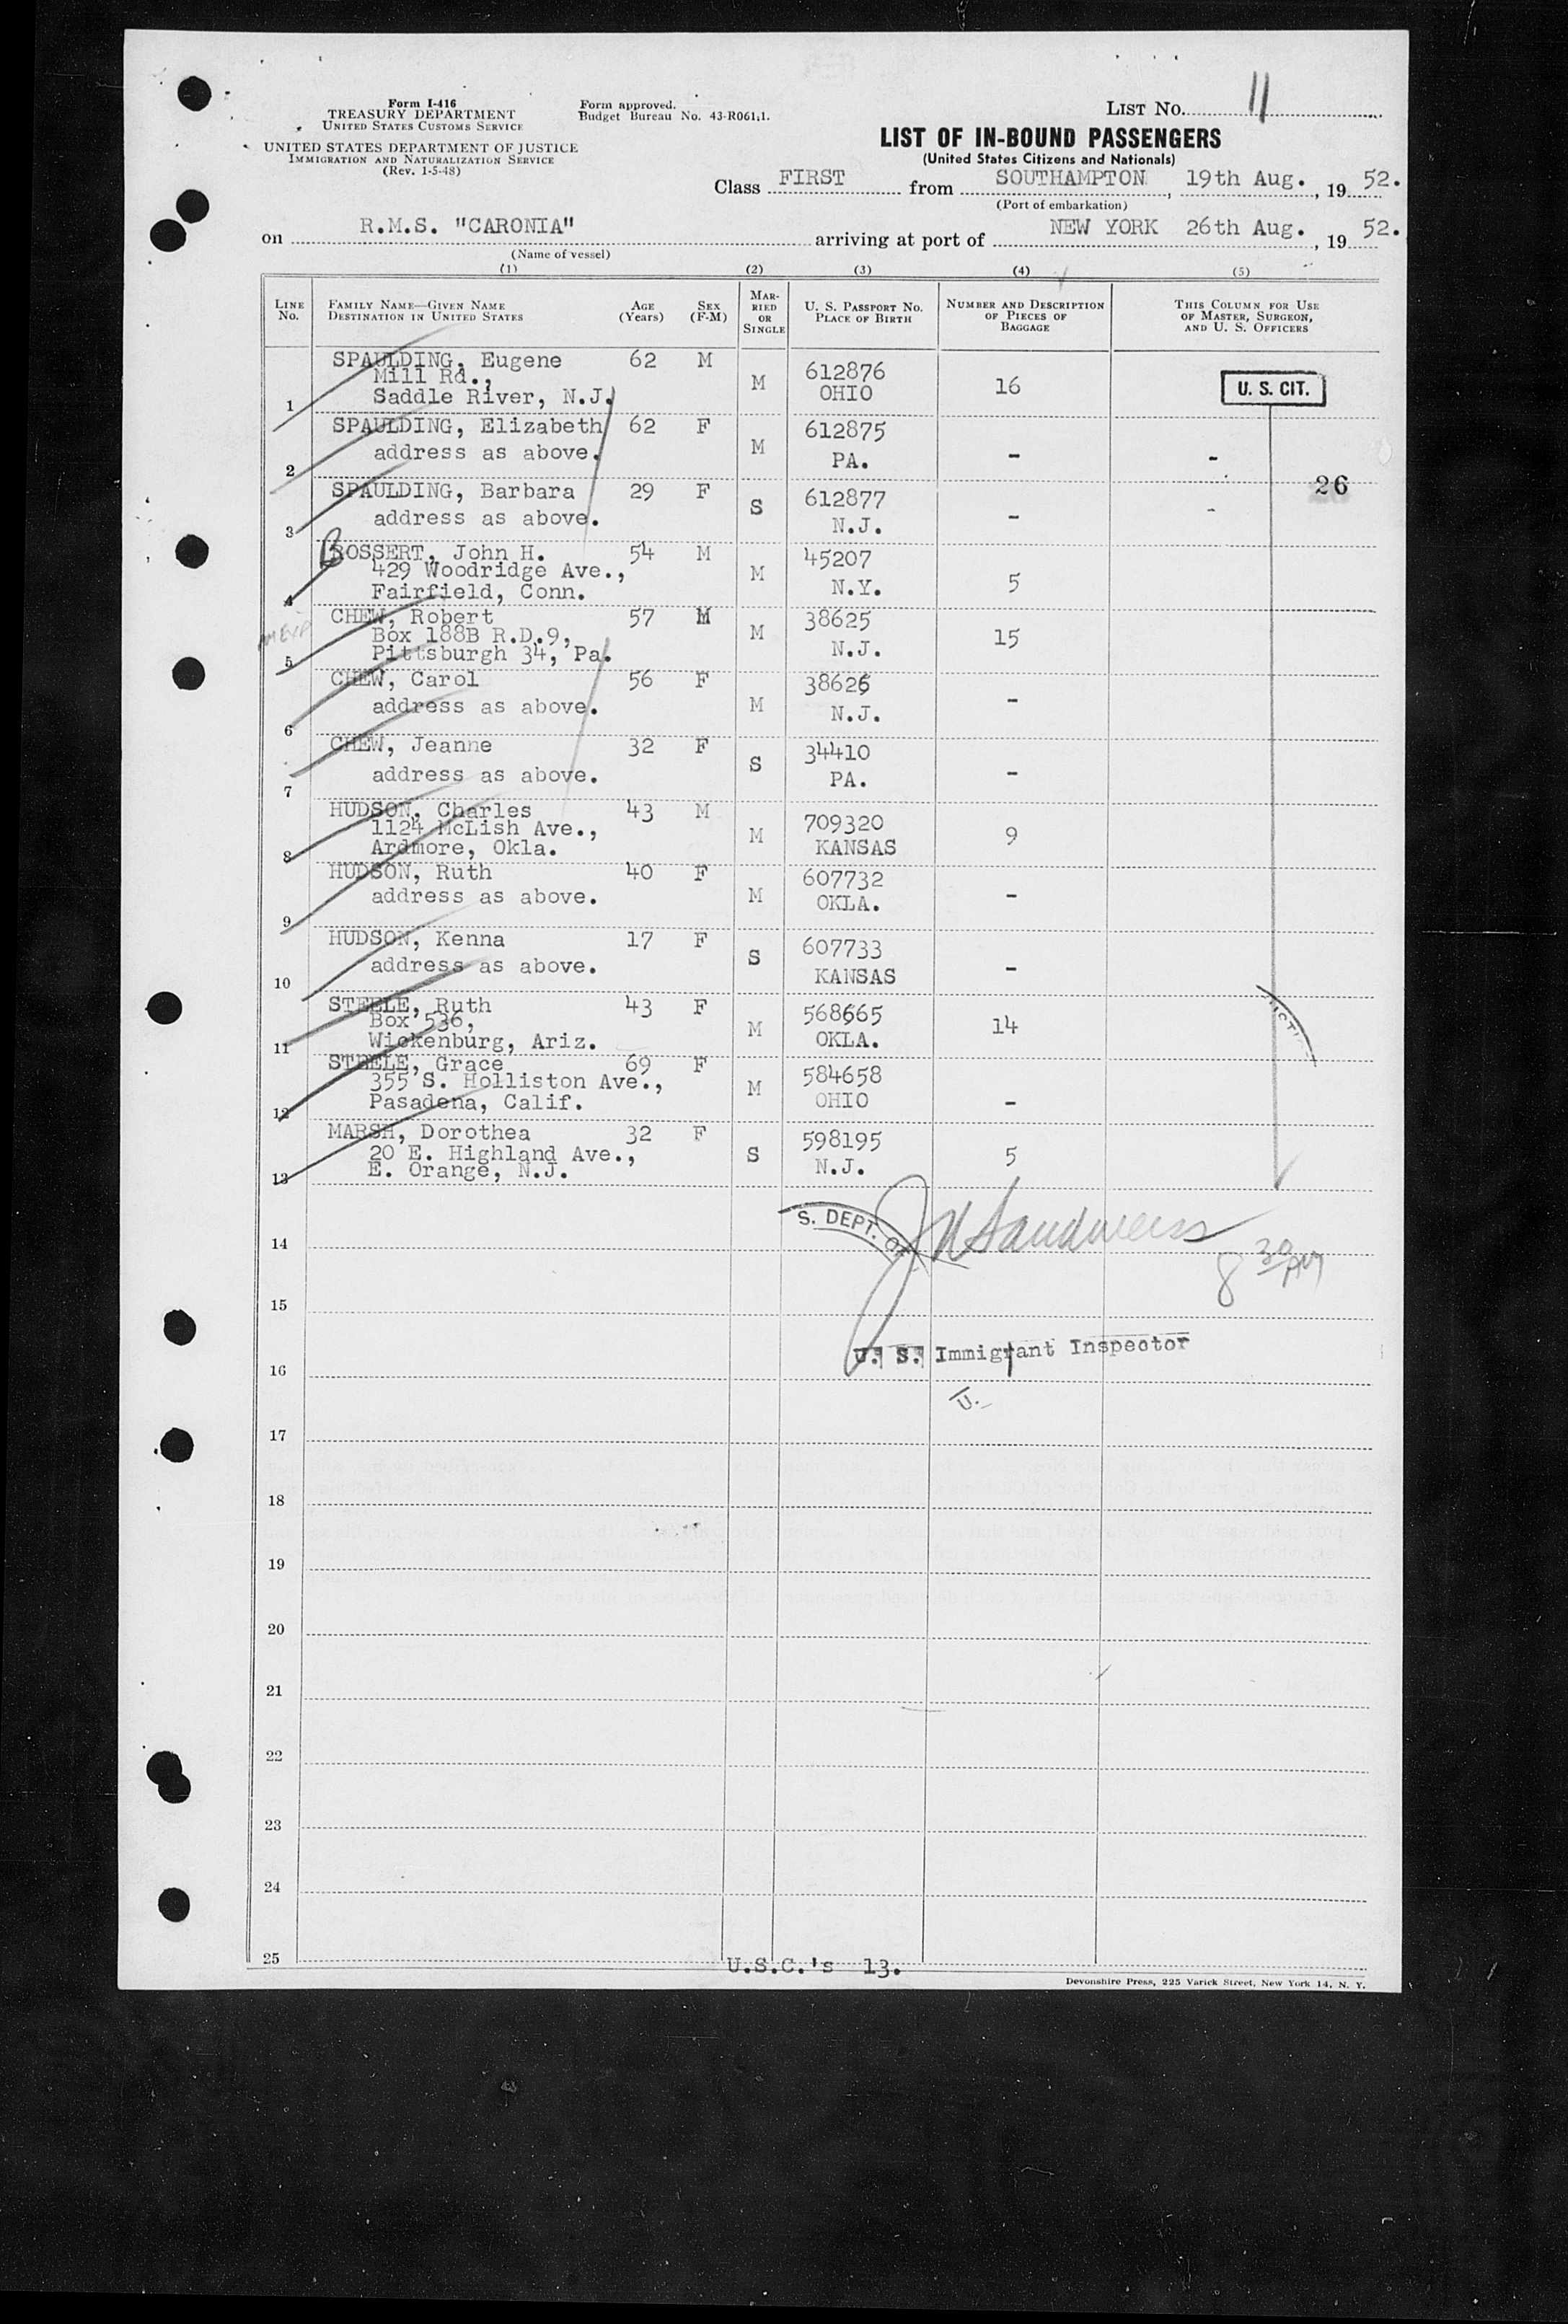 Form I-416
TREASURY DEPARTMENT
UNITED STATES CUSTOMS SERVICE
UNITED STATES DEPARTMENT OF JUSTICE
IMMIGRATION AND NATURALIZATION SERVICE
(Rev. 1-5-48)
Form approved.
Budget Bureau No. 43-R061.1.
LIST NO. 11
LIST OF IN-BOUND PASSENGERS
(United States Citizens and Nationals)
Class FIRST from SOUTHAMPTON, 19th Aug., 1952.
(Port of embarkation)
on R.M.S. "CARONIA" arriving at port of NEW YORK 26th Aug., 1952.
(Name of vessel)
(1) (2) (3) (4) (5)
LINE NO.
FAMILY NAME—GIVEN NAME
DESTINATION IN UNITED STATES
AGE (Years)
SEX (F-M)
MARRIED OR SINGLE
U. S. PASSPORT NO.
PLACE OF BIRTH
NUMBER AND DESCRIPTION OF PIECES OF BAGGAGE
THIS COLUMN FOR USE OF MASTER, SURGEON, AND U. S. OFFICERS
1 SPAULDING, Eugene 62 M M 612876 16
Mill Rd., OHIO
Saddle River, N.J.
U. S. CIT.
2 SPAULDING, Elizabeth 62 F M 612875 - -
address as above. PA.
26
3 SPAULDING, Barbara 29 F S 612877 - -
address as above. N.J.
4 BOSSERT, John H. 54 M M 45207 5
429 Woodridge Ave., N.Y.
Fairfield, Conn.
5 CHEW, Robert 57 M M 38625 15
Box 188B R.D.9, N.J.
Pittsburgh 34, Pa.
6 CHEW, Carol 56 F M 38626 -
address as above. N.J.
7 CHEW, Jeanne 32 F S 34410 -
address as above. PA.
8 HUDSON, Charles 43 M M 709320 9
1124 McLish Ave., KANSAS
Ardmore, Okla.
9 HUDSON, Ruth 40 F M 607732 -
address as above. OKLA.
10 HUDSON, Kenna 17 F S 607733 -
address as above. KANSAS
11 STEELE, Ruth 43 F M 568665 14
Box 536, OKLA.
Wickenburg, Ariz.
12 STEELE, Grace 69 F M 584658 -
355 S. Holliston Ave., OHIO
Pasadena, Calif.
13 MARSH, Dorothea 32 F S 598195 5
20 E. Highland Ave., N.J.
E. Orange, N.J.
S. DEPT. OF
14
8 30 AM
15
U. S. Immigrant Inspector
16
U.
17
18
19
20
21
22
23
24
25
U.S.C.'s 13.
Devonshire Press, 225 Varick Street, New York 14, N. Y.